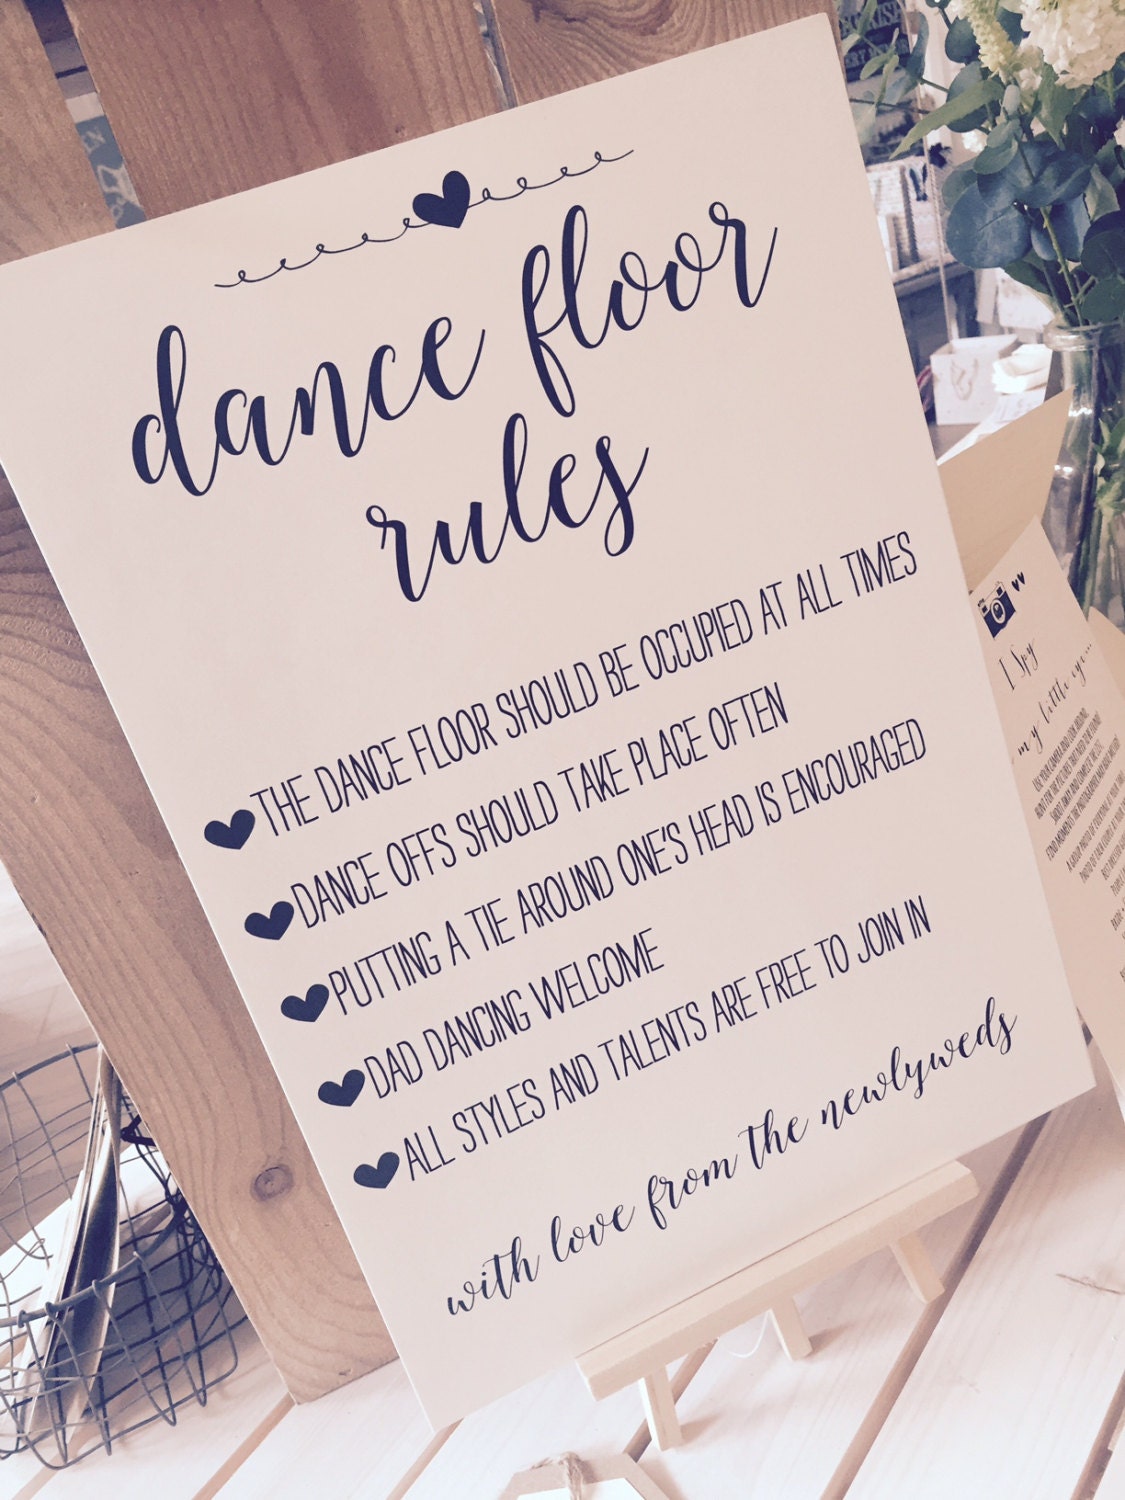 dance floor
rules
THE DANCE FLOOR SHOULD BE OCCUPIED AT ALL TIMES
DANCE OFFS SHOULD TAKE PLACE OFTEN
PUTTING A TIE AROUND ONE'S HEAD IS ENCOURAGED
DAD DANCING WELCOME
ALL STYLES AND TALENTS ARE FREE TO JOIN IN
with love from the newlyweds
I Spy
my little eye...